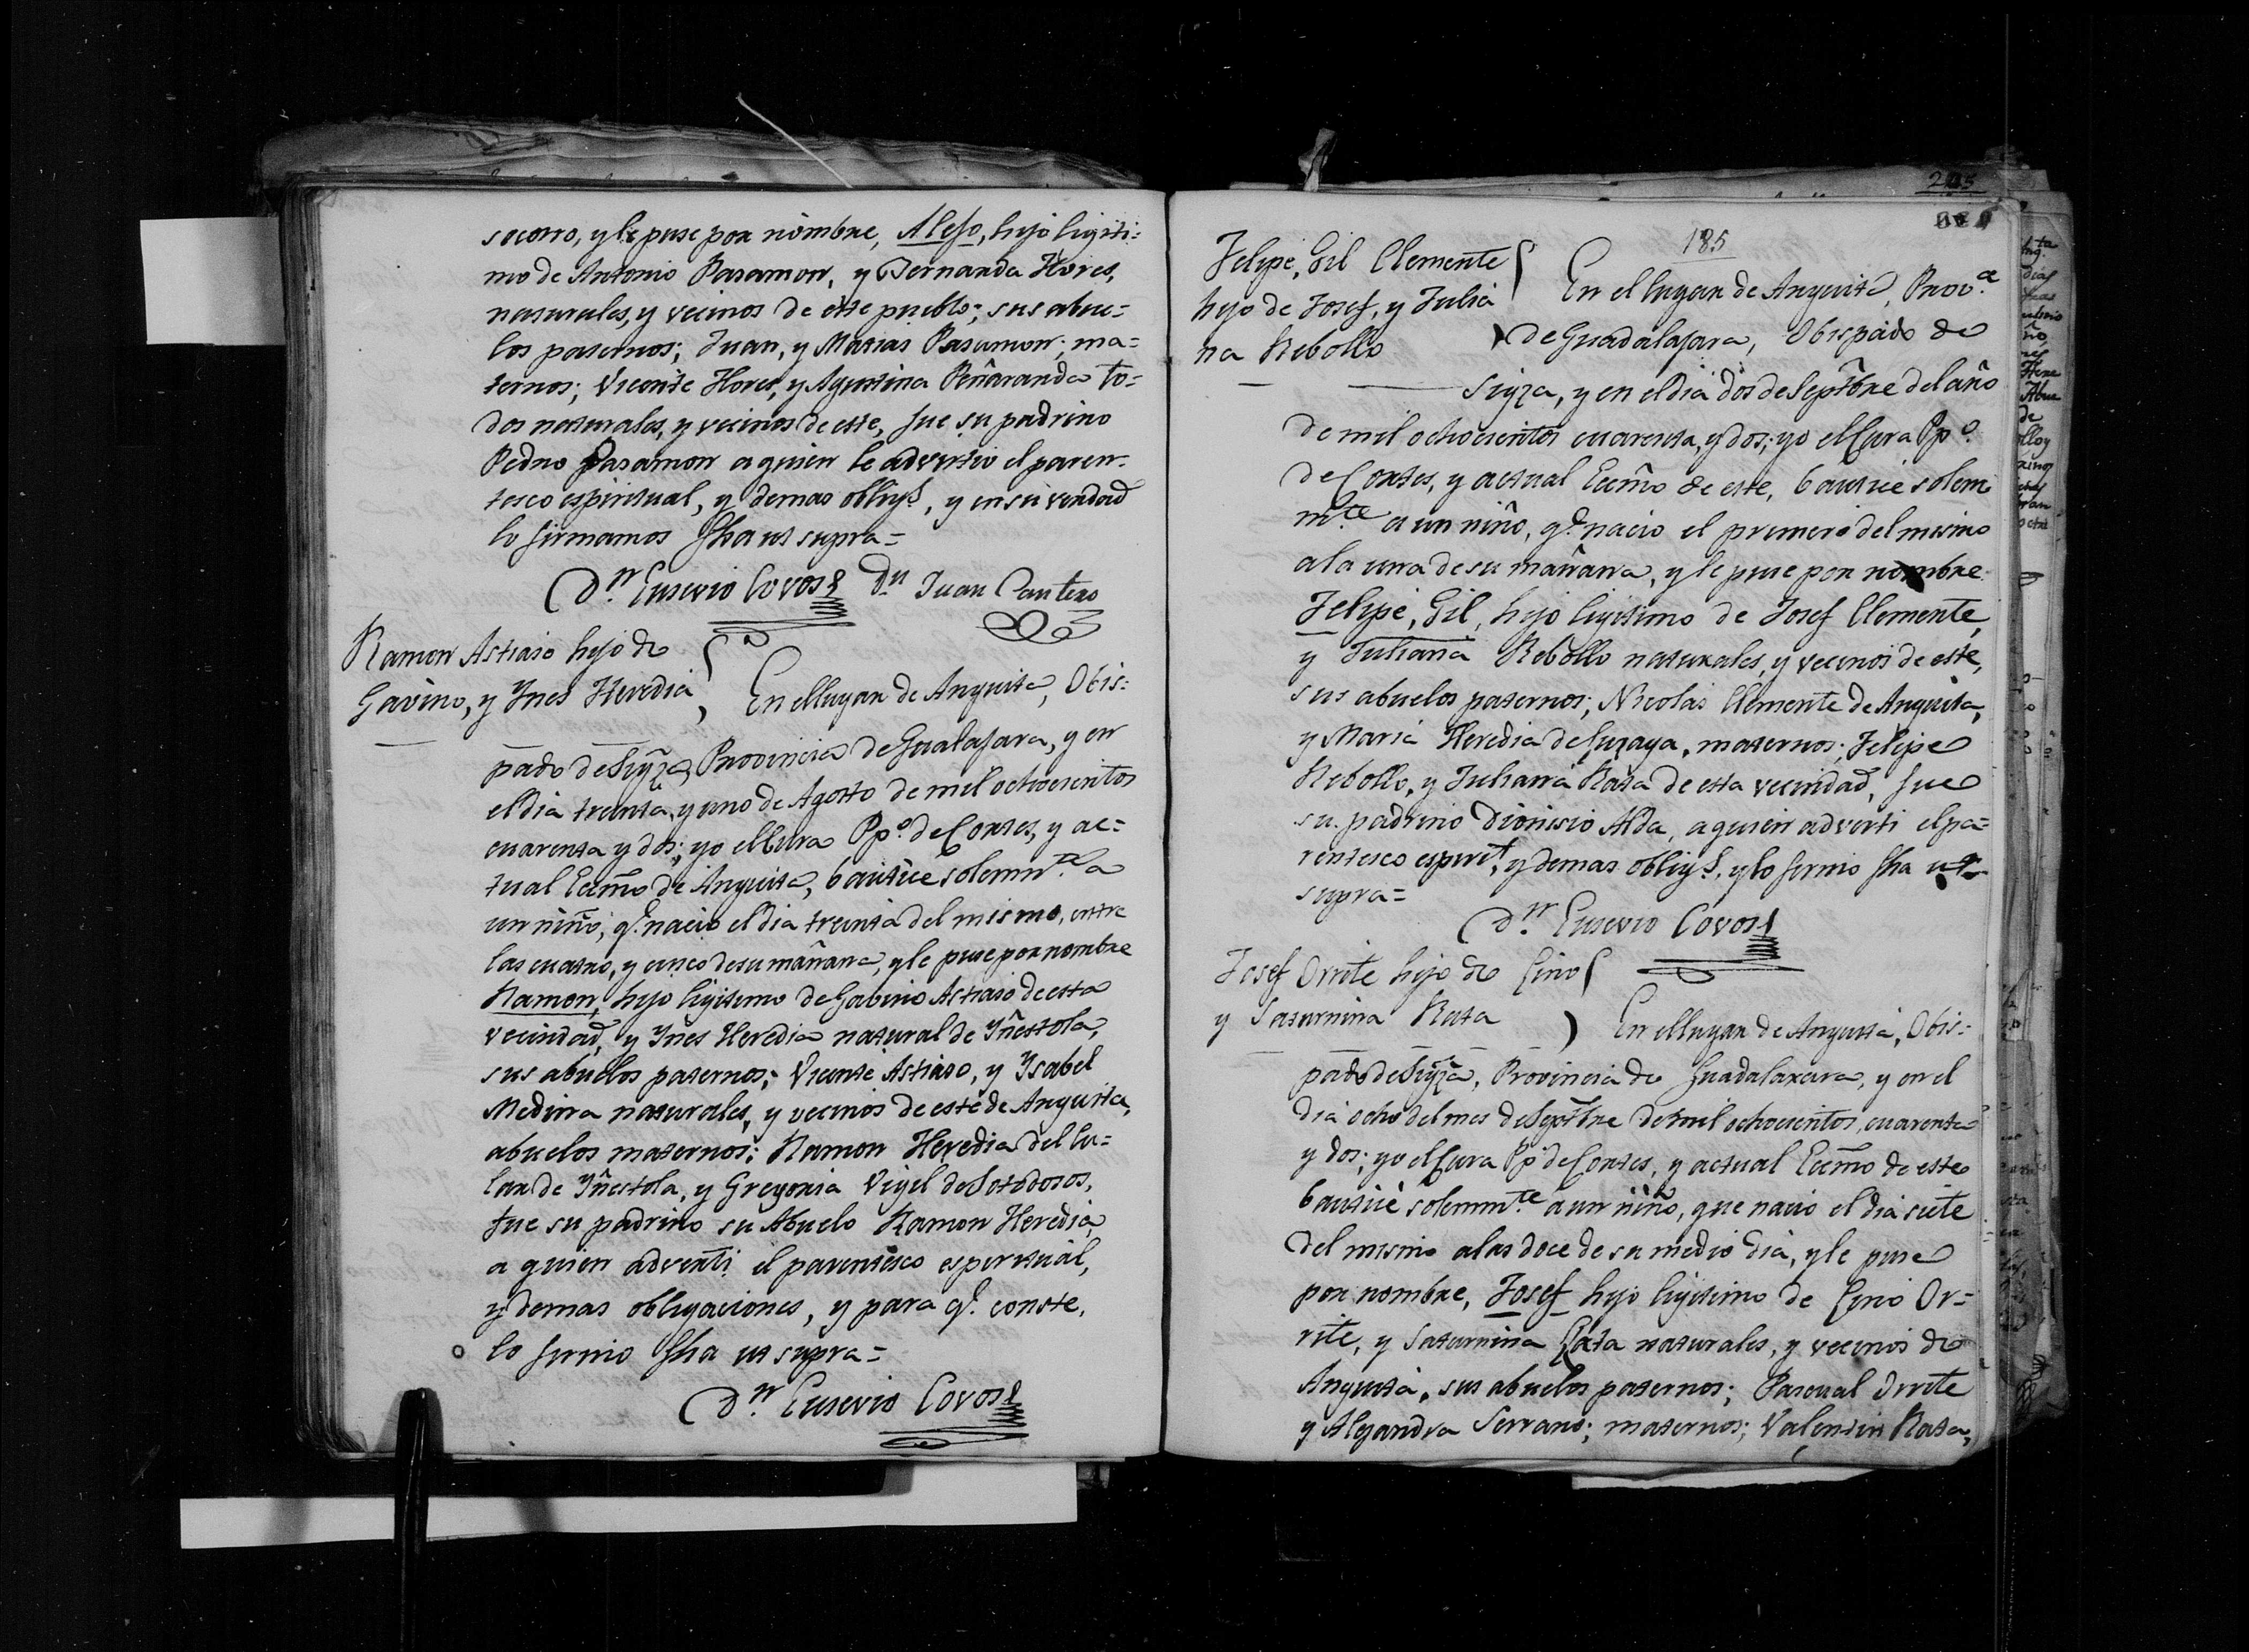 socorro, y le puse por nombre, Alejo, hijo ligiti=
mo de Antonio Pasamon, y Bernarda Flores,
naturales, y vecinos de este pueblo; sus abue=
los paternos; Juan, y Matias Pasamon; ma=
ternos; Vicente Flores, y Agustina Peñaranda to=
dos naturales, y vecinos de este, fue su padrino
Pedro Pasamon a quien le advirtio el paren-
tesco espiritual, y demas obligs., y en su verdad
lo firmamos fha ut supra=
Dn. Eusevio Covos Dn Juan Cantero
Ramon Astiaso hijo de
Gavino, y Ynes Heredia
En el lugar de Anguita, Obis=
pado de Sigza, Provincia de Gualajara, y en
el dia treinta, y uno de Agosto de mil ochocientos
cuarenta y dos; yo el Cura Ppo. de Cortes, y ac=
tual Ecmo de Anguita, bautice solemnte. a
un niño, q. nacio el dia treinta del mismo, entre
las cuatro, y cinco de su mañana, y le puse por nombre
Ramon, hijo ligitimo de Gabino Astiaso de esta
vecindad, y Ynes Heredia natural de Yñestola,
sus abuelos paternos; Vicente Astiaso, y Ysabel
Medina naturales, y vecinos de este de Anguita,
abuelos maternos; Ramon Heredia del lu=
lar de Yñestola, y Gregoria Vigil de Sotodosos,
fue su padrino su Abuelo Ramon Heredia,
a quien adverti el parentesco espiritual,
y demas obligaciones, y para q. conste,
lo firmo fha ut supra=
Dn. Eusevio Covos
245
185
Felipe, Gil Clemente
hijo de Josef, y Julia
na Rebollo
En el lugar de Anguita, Prova.
de Guadalajara, Obispado de
Sigza, y en el dia dos de Septbre del año
de mil ochocientos cuarenta, y dos; yo el Cura Ppo.
de Cortes, y actual Ecmo de este, bautice solem
mte. a un niño, q. nacio el primero del mismo
a la una de su mañana, y le puse por nombre
Felipe, Gil, hijo ligitimo de Josef Clemente,
y Juliana Rebollo naturales, y vecinos de este,
sus abuelos paternos; Nicolas Clemente de Anguita,
y Maria Heredia de Luzaga, maternos; Felipe
Rebollo, y Juliana Rata de esta vecindad, fue
su padrino Dionisio Alda, a quien adverti el pa=
rentesco espirt. y demas obligs. y lo firmo fha ut
supra=
Dn. Eusevio Covos
Josef Orrite hijo de Lino
y Saturnina Rata
En el lugar de Anguita, Obis=
pado de Sigza, Provincia de Guadalaxara, y en el
dia ocho del mes de Septbre de mil ochocientos, cuarenta
y dos; yo el Cura Pp. de Cortes, y actual Ecmo de este
bautice solemnte. a un niño, que nacio el dia siete
del mismo a las doce de su medio dia, y le puse
por nombre, Josef hijo ligitimo de Lino Or=
rite, y Saturnina Rata naturales, y vecinos de
Anguita, sus abuelos paternos; Pascual Orrite
y Alejandra Serrano; maternos; Valentin Rata,